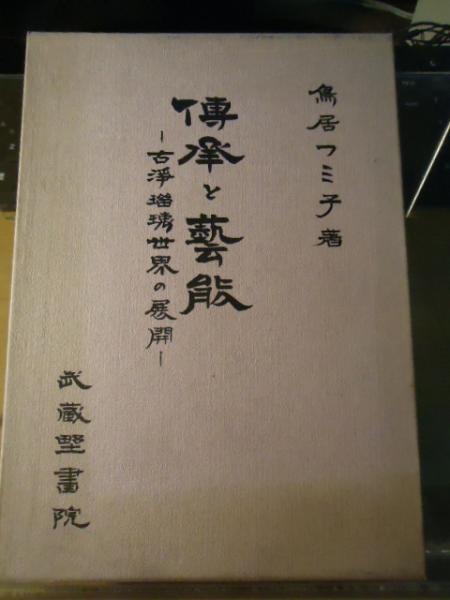 鳥居フミ子著
傳承と藝能
-古淨瑠璃世界の展開-
武蔵野書院